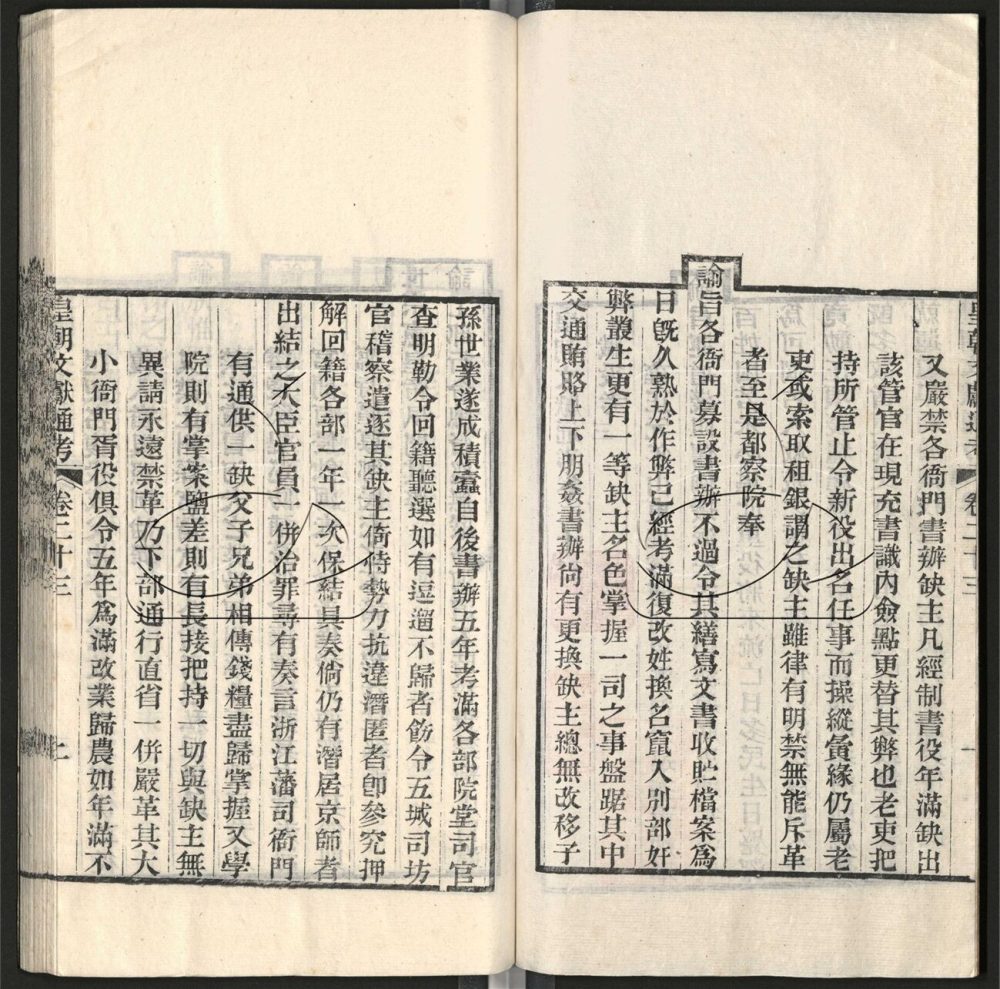 皇朝文獻通考 卷二十三
又嚴禁各衙門書辦缺主凡經制書役年滿缺出
該管官在現充書識內僉點更替其弊也老吏把
持所管止令新役出名任事而操縱夤緣仍屬老
吏或索取租銀謂之缺主雖律有明禁無能斥革
者至是都察院奉
諭旨各衙門募設書辦不過令其繕寫文書收貯檔案爲
日旣久熟於作弊已經考滿復改姓換名竄入別部奸
弊叢生更有一等缺主名色掌握一司之事盤踞其中
交通賄賂上下朋姦書辦尙有更換缺主總無改移子
孫世業遂成積蠧自後書辦五年考滿各部院堂司官
查明勒令回籍聽選如有逗遛不歸者飭令五城司坊
官稽察遣逐其缺主倚恃勢力抗違潛匿者卽參究押
解回籍各部一年一次保結具奏倘仍有潛居京師者
出結之大臣官員一併治罪尋有奏言浙江藩司衙門
有通供一缺父子兄弟相傳錢糧盡歸掌握又學
院則有掌案鹽差則有長接把持一切與缺主無
異請永遠禁革乃下部通行直省一併嚴革其大
小衙門胥役俱令五年爲滿改業歸農如年滿不
皇朝文獻通考 卷二十三